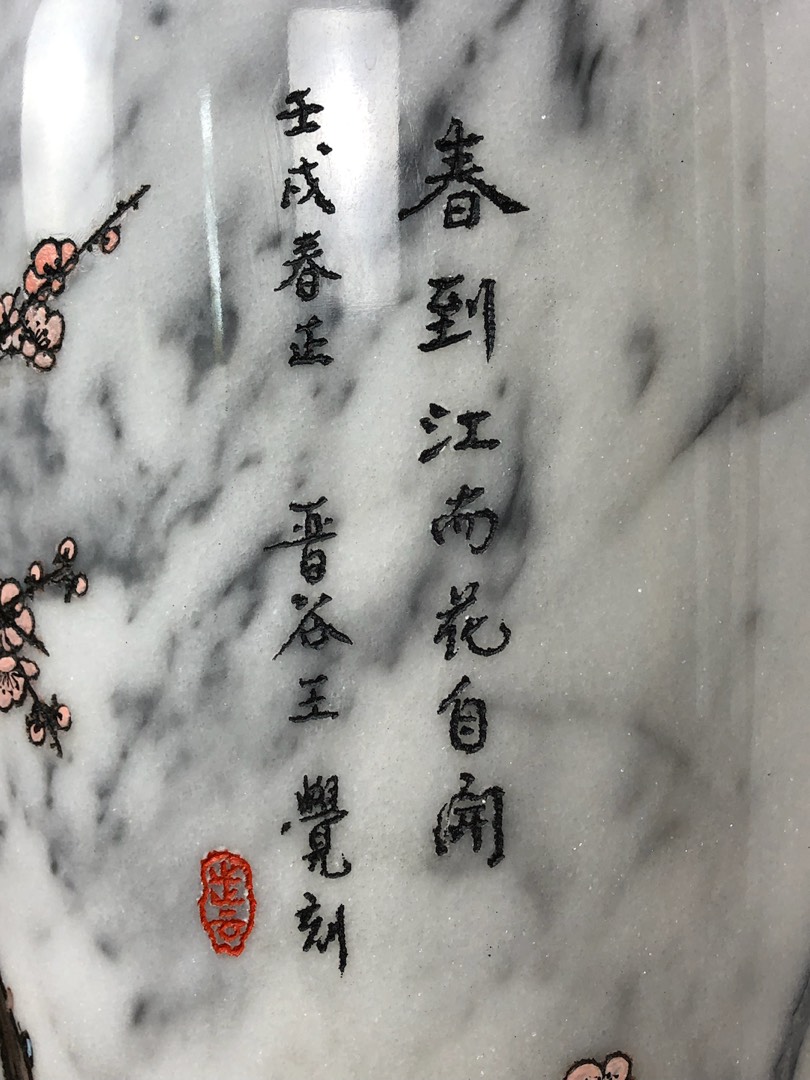 春到江南花自開
壬戌春正 晉谷王 覺刻